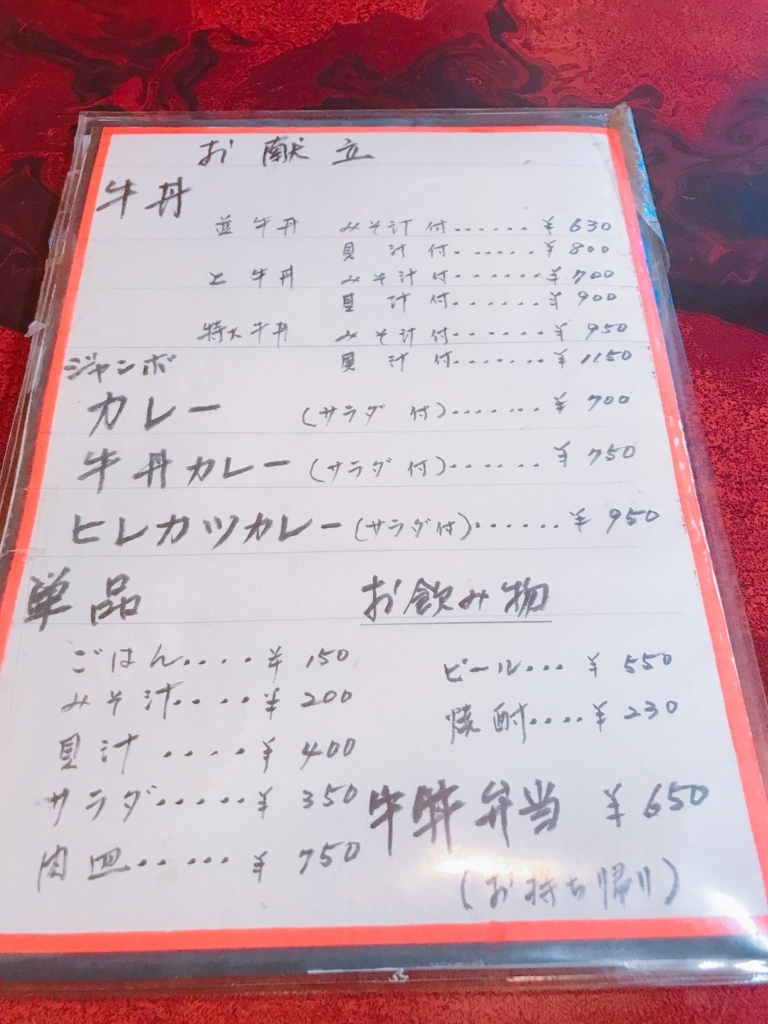 お献立
牛丼
並牛丼 みそ汁付......¥630
貝汁付......¥800
上牛丼 みそ汁付......¥700
貝汁付......¥900
特大牛丼 みそ汁付......¥950
貝汁付.......¥1150
ジャンボ
カレー (サラダ付).......¥700
牛丼カレー (サラダ付).......¥750
ヒレカツカレー (サラダ付).......¥950
単品
ごはん....¥150
みそ汁....¥200
貝汁....¥400
サラダ.....¥350
肉皿.....¥750
お飲み物
ビール...¥550
焼酎....¥230
牛丼弁当 ¥650
(お持ち帰り)